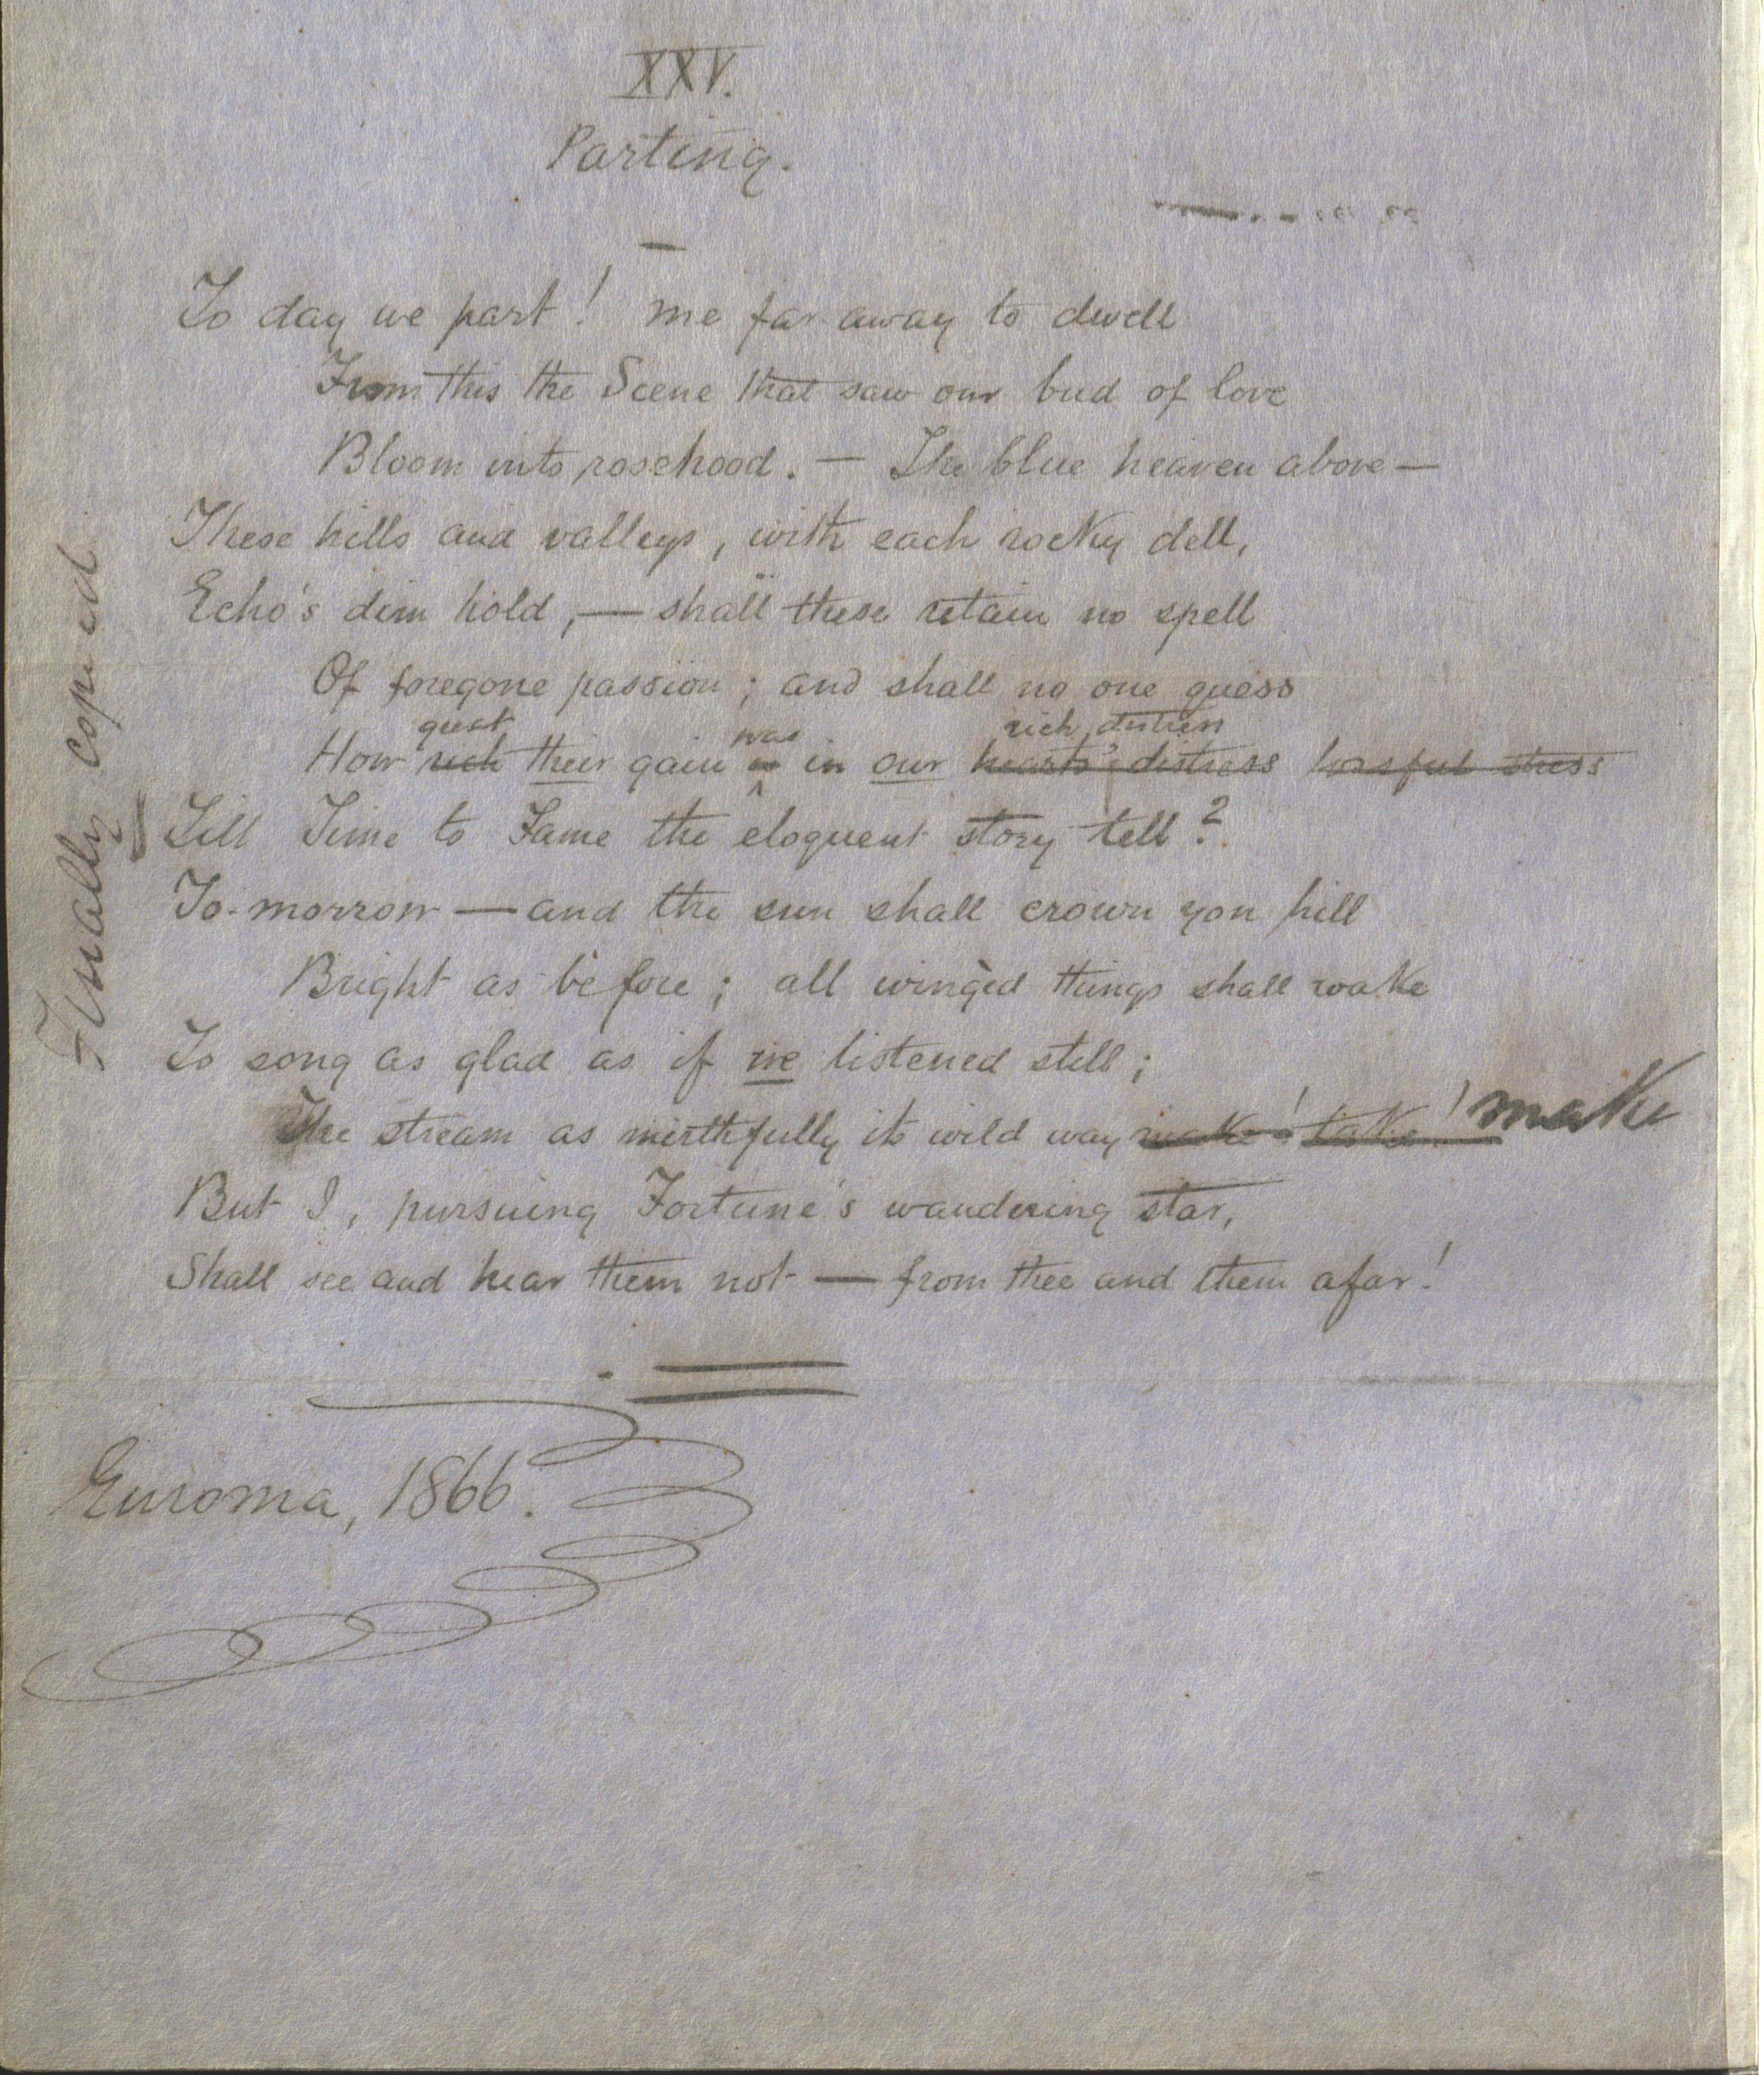 XXV.
Parting.
To day we part! me far away to dwell
From this the Scene that saw our bud of love
Bloom into rosehood. — The blue heaven above —
These hills and valleys, with each rocky dell,
Echo's dim hold, — shall these retain no spell
Of foregone passion; and shall no one guess
great was rich distress
How rich their gain in our hearts' distress stress
Till Time to Fame the eloquent story tell?
To-morrow — and the sun shall crown yon hill
Bright as before; all wingèd things shall wake
To song as glad as if we listened still;
The stream as mirthfully its wild way make! take! make
But I, pursuing Fortune's wandering star,
Shall see and hear them not — from thee and them afar!
Euroma, 1866.
Finally copied